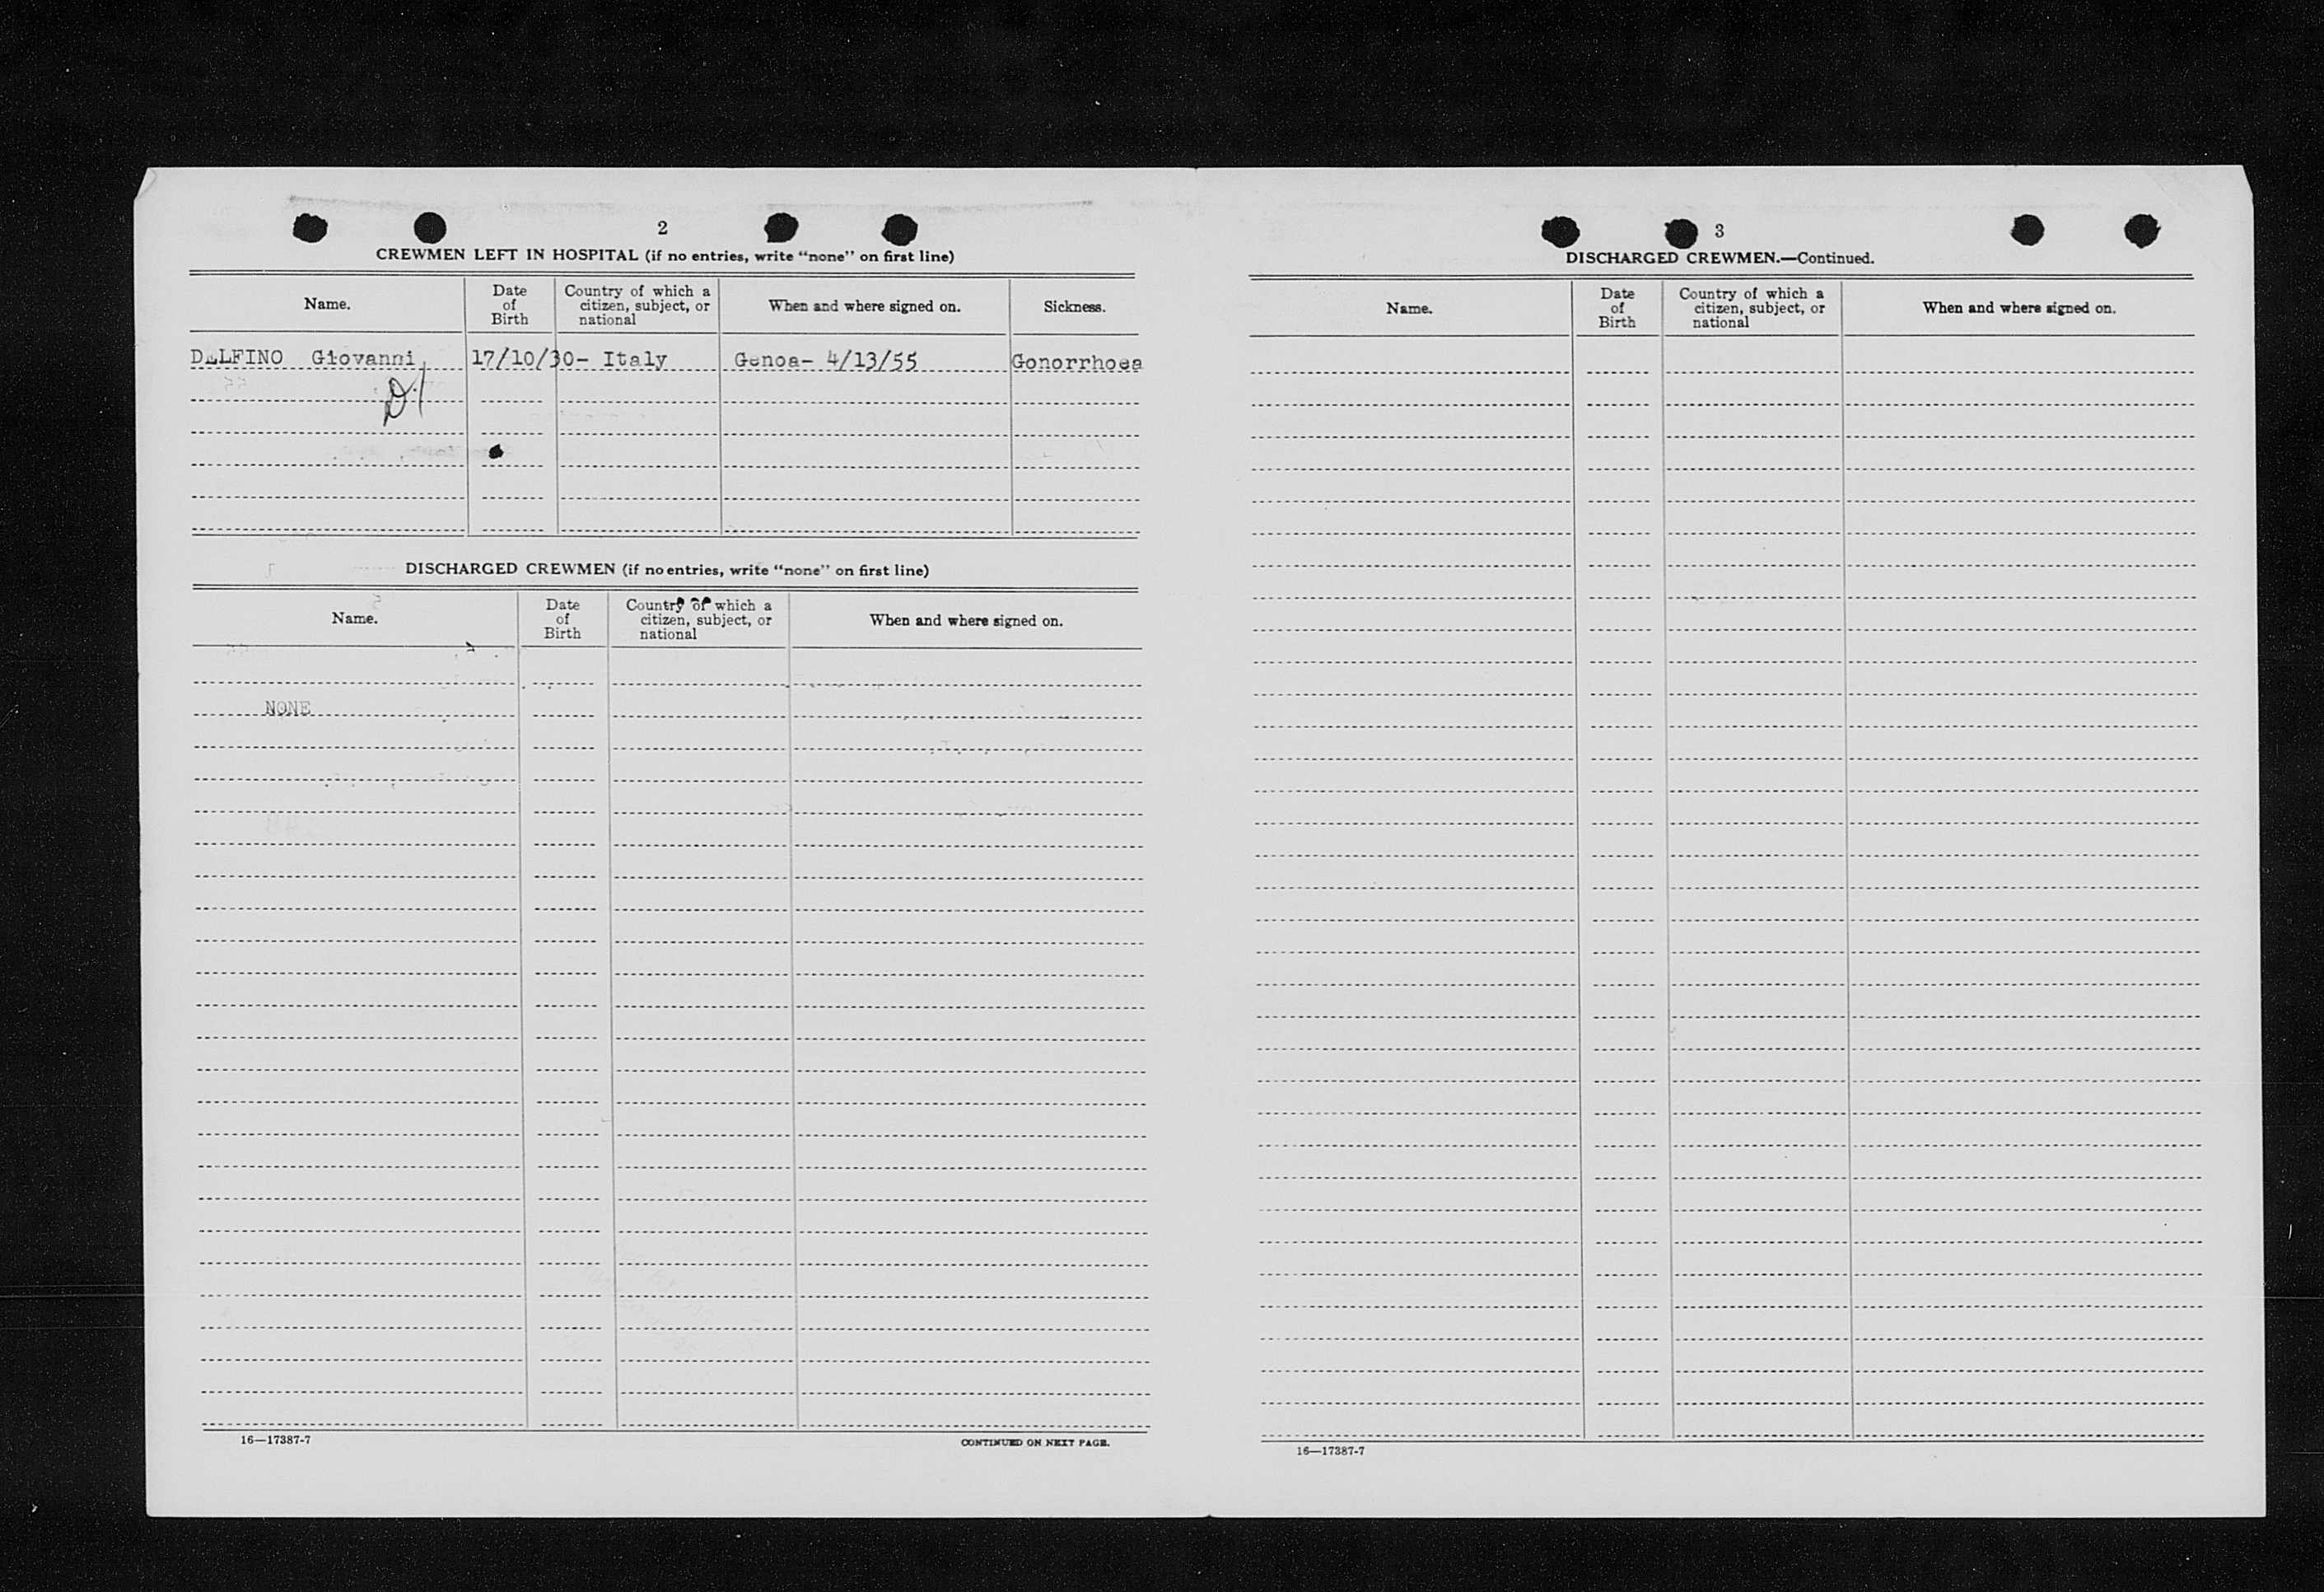 2
CREWMEN LEFT IN HOSPITAL (if no entries, write "none" on first line)
Name. Date of Birth Country of which a citizen, subject, or national When and where signed on. Sickness.
DELFINO Giovanni 17/10/30- Italy Genoa- 4/13/55 Gonorrhoea
DISCHARGED CREWMEN (if no entries, write "none" on first line)
Name. Date of Birth Country of which a citizen, subject, or national When and where signed on.
NONE
16—17387-7 CONTINUED ON NEXT PAGE.
3
DISCHARGED CREWMEN.—Continued.
Name. Date of Birth Country of which a citizen, subject, or national When and where signed on.
16—17387-7